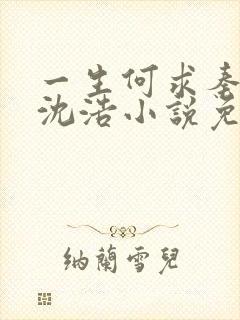 一生何求秦
沈浩小說免
納蘭雪兒